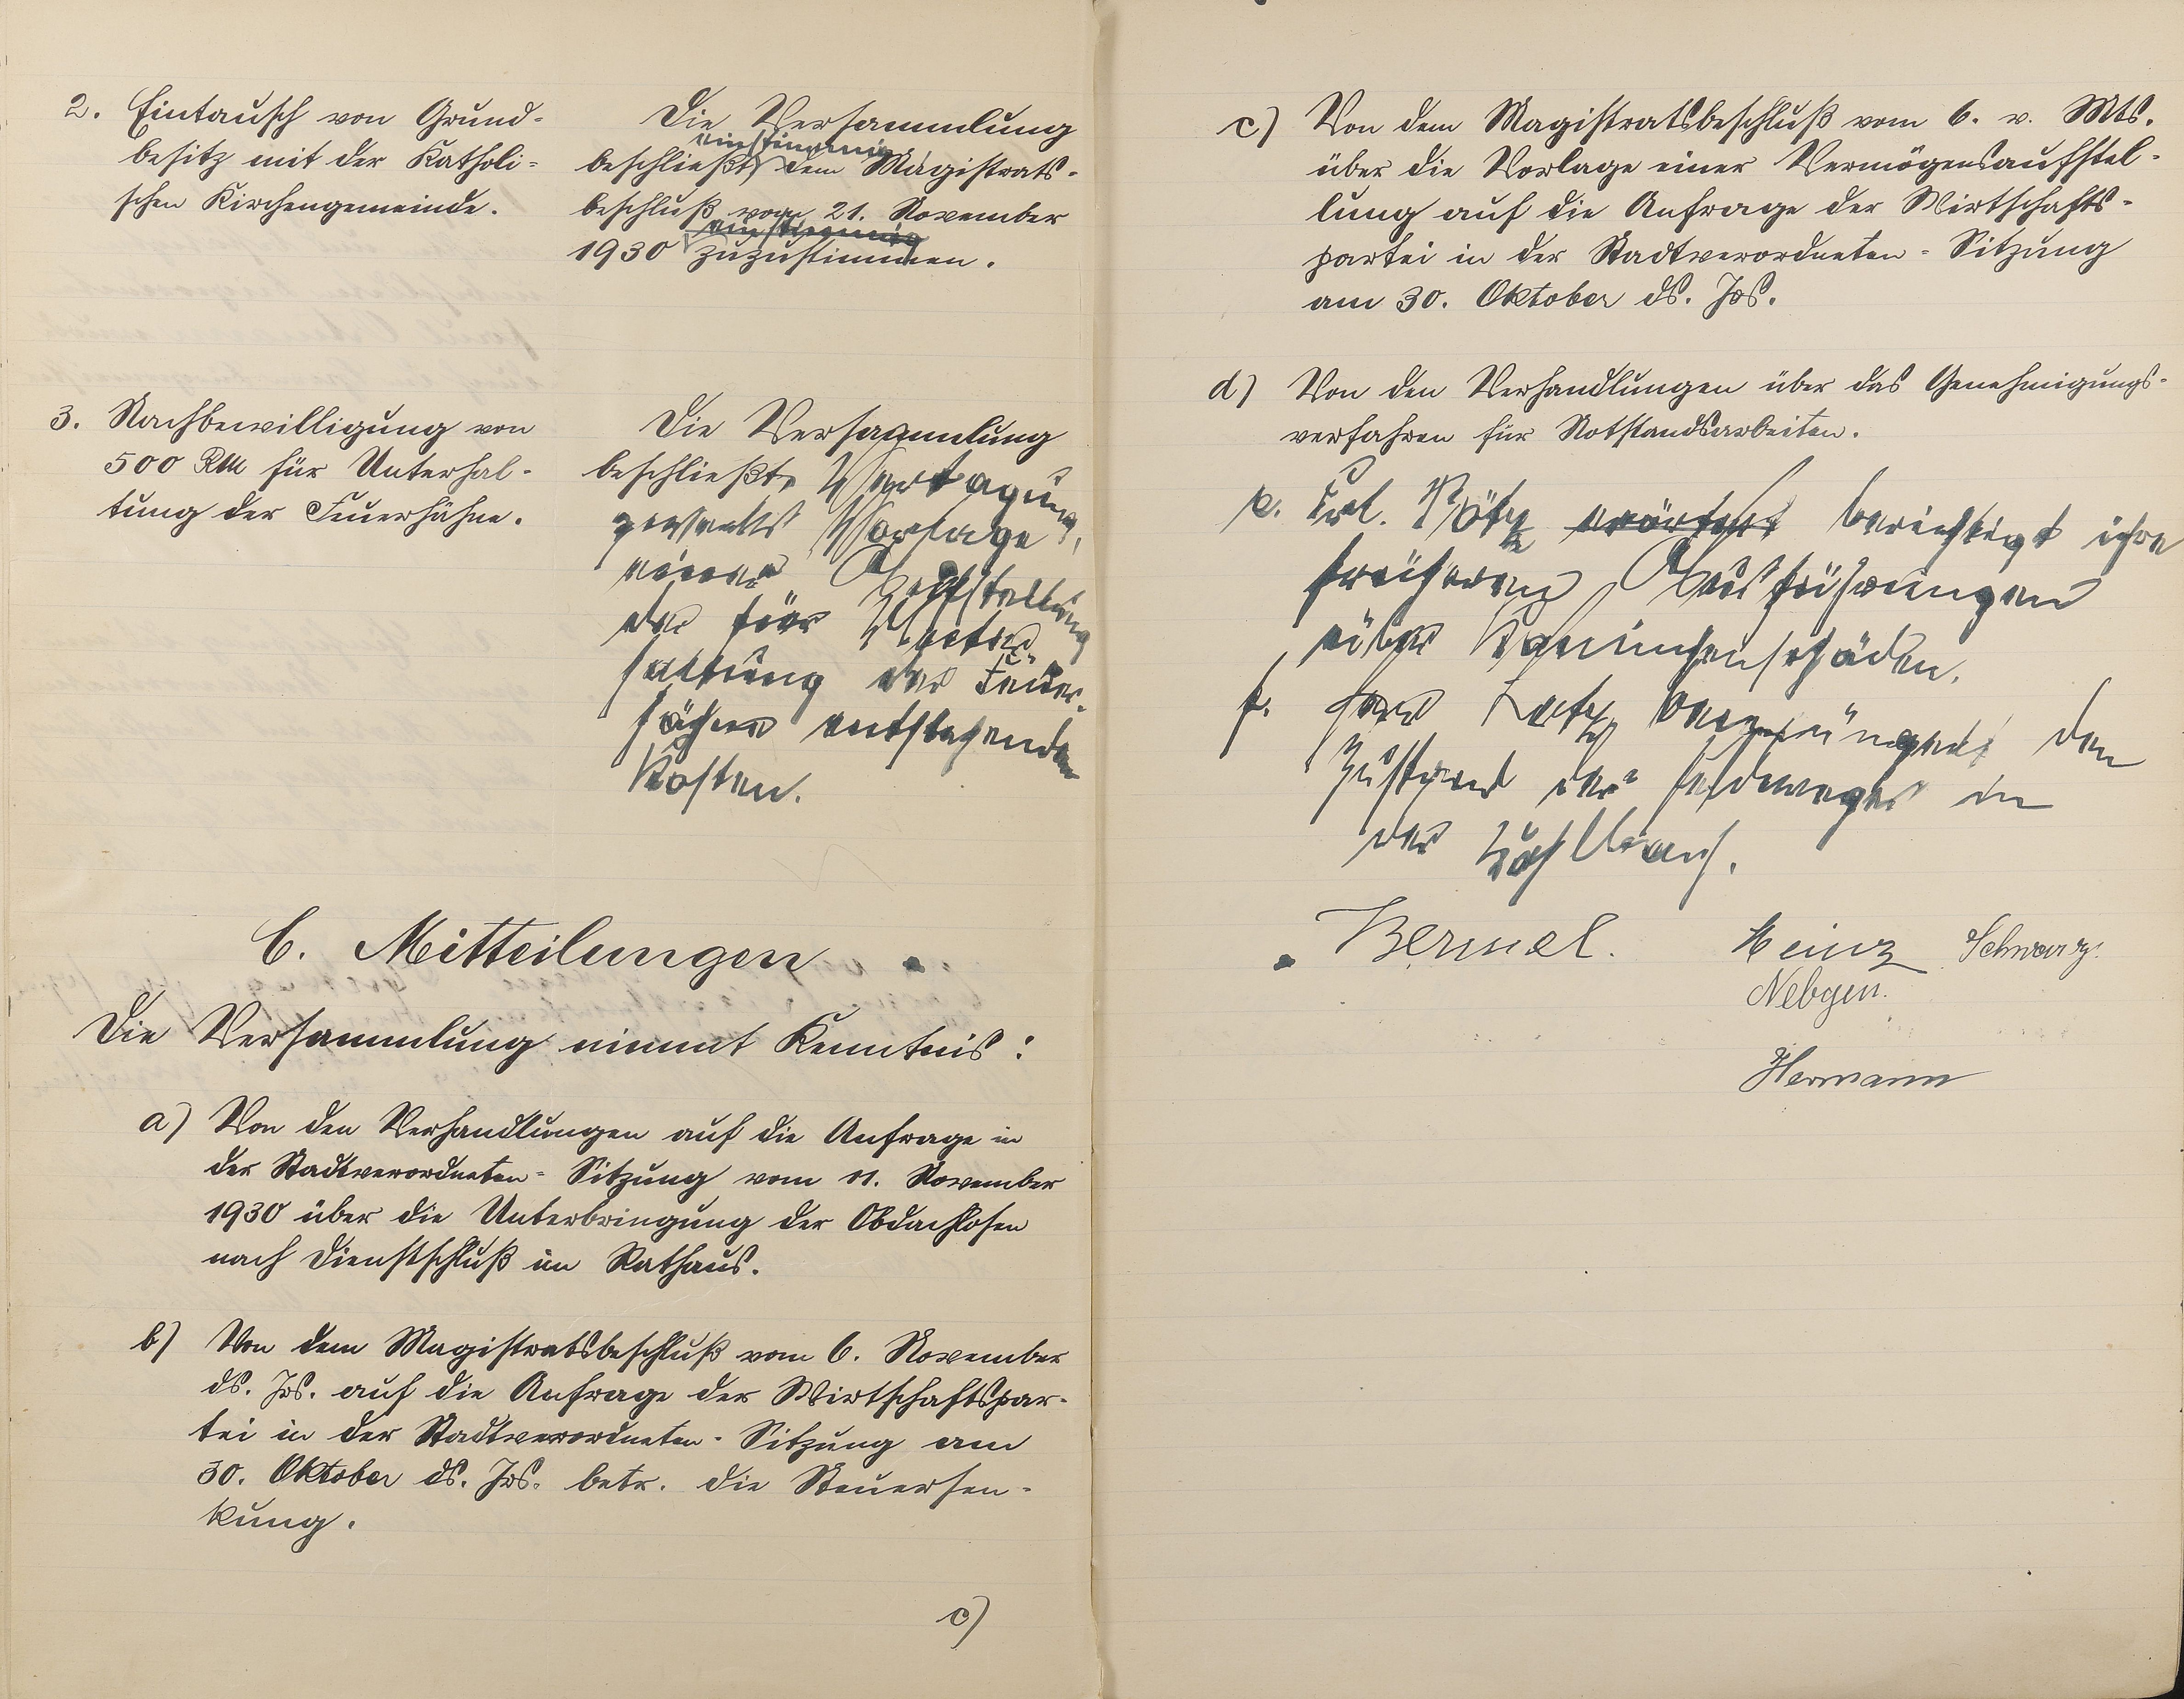 2. Eintausch von Grund-
besitz mit der Katholi-
schen Kirchengemeinde.
Die Versammlung
einstimmig
beschließt, dem Magistrats-
beschluß vom 21. November
einstimmig
1930 zuzustimmen.
3. Nachbewilligung von
500 RM für Unterhal-
tung der Feuerhähne.
Die Versammlung
beschließt Vertagung
zwecks Vorlage
einer Aufstellung
der für Unter-
haltung der Feuer-
hähne entstehenden
Kosten.
C. Mitteilungen
Die Versammlung nimmt Kenntnis:
a) Von den Verhandlungen auf die Anfrage in
der Stadtverordneten-Sitzung vom 11. November
1930 über die Unterbringung der Obdachlosen
nach Dienstschluß im Rathaus.
b) Von dem Magistratsbeschluß vom 6. November
ds. Jrs. auf die Anfrage der Wirtschaftspar-
tei in der Stadtverordneten-Sitzung am
30. Oktober ds. Jrs. betr. die Steuersen-
kung.
c)
c) Von dem Magistratsbeschluß vom 6. v. Mts.
über die Vorlage einer Vermögensaufstel-
lung auf die Anfrage der Wirtschafts-
partei in der Stadtverordneten-Sitzung
am 30. Oktober ds. Jrs.
d) Von den Verhandlungen über das Genehmigungs-
verfahren für Notstandsarbeiten.
e. Frl. Götz erörtert berichtigt ihre
früheren Ausführungen
über Kaninchenschäden.
f. Herr bemängelt den
Zustand des Feldweges in
der
Bermel. Heinz Schwarz.
Nebgen.
Hermann